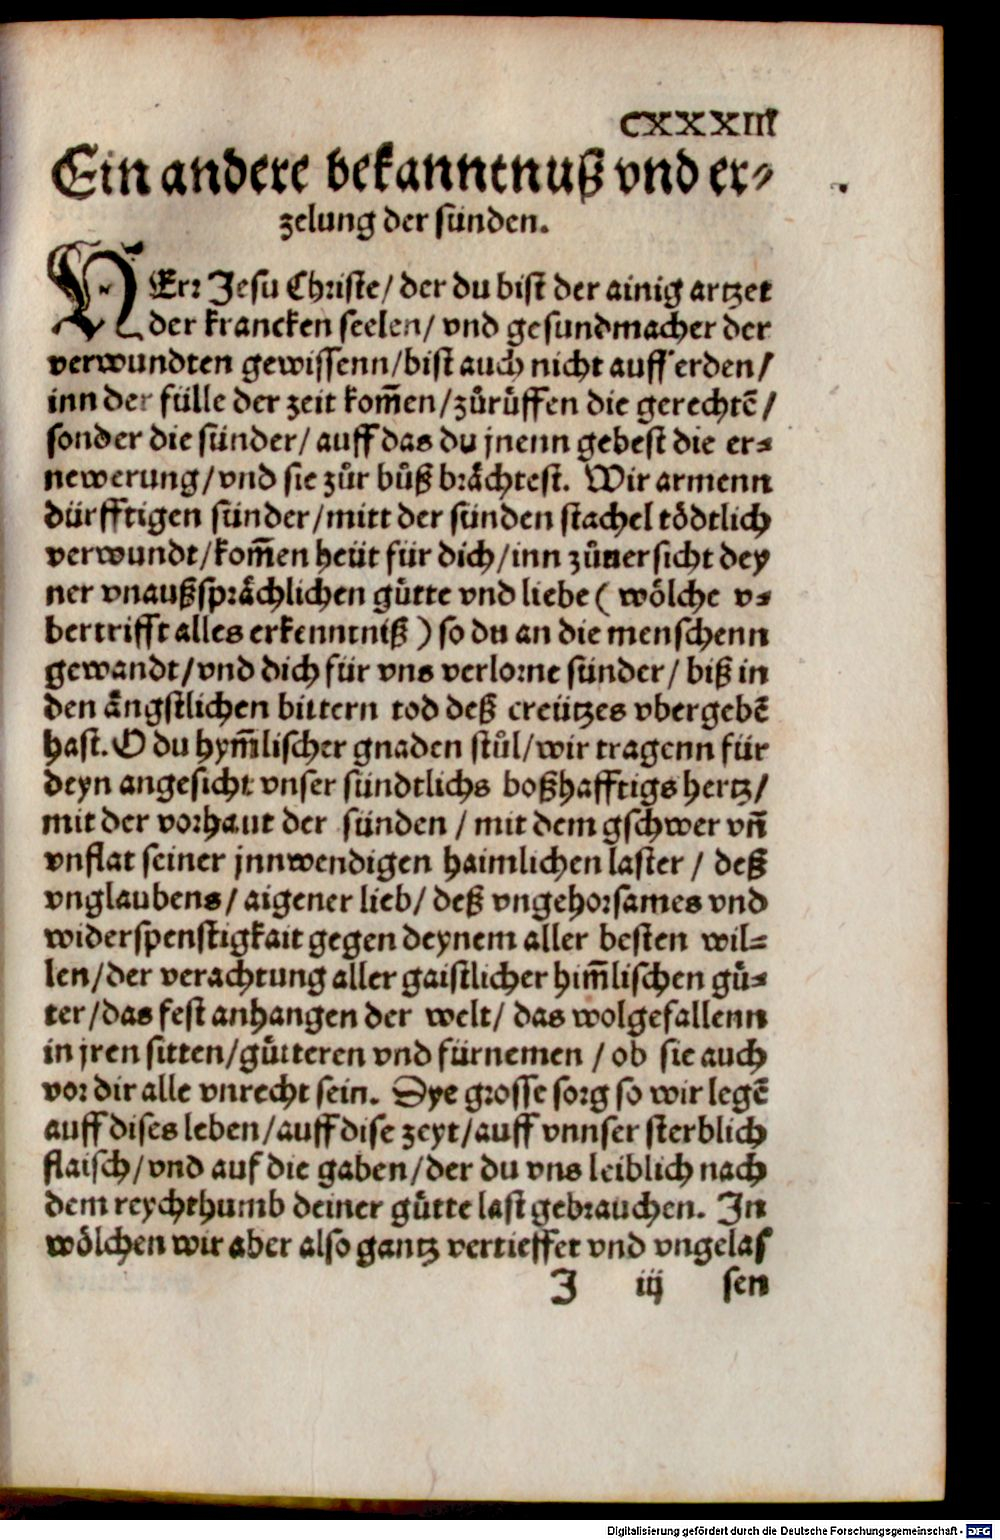 CXXXIII
Ein andere bekanntnuß vnd er⸗
zelung der sünden.
HErr Jesu Christe/ der du bist der ainig artzet
der krancken seelen/ vnd gesundmacher der
verwundten gewissenn/bist auch nicht auff erden/
inn der fülle der zeit kom̃en/zůrůffen die gerechtẽ/
sonder die sünder/ auff das du jnenn gebest die er⸗
newerung/vnd sie zůr bůß brächtest. Wir armenn
dürfftigen sünder/mitt der sünden stachel tödtlich
verwundt/kom̃en heüt für dich/inn zůuersicht dey
ner vnaußsprächlichen gůtte vnd liebe ( wölche v⸗
bertrifft alles erkenntniß ) so du an die menschenn
gewandt/vnd dich für vns verlorne sünder/ biß in
den ängstlichen bittern tod deß creützes vbergebẽ
hast. O du hym̃lischer gnaden stůl/wir tragenn für
deyn angesicht vnser sündtlichs boßhafftigs hertz/
mit der vorhaut der sünden / mit dem gschwer vñ
vnflat seiner jnnwendigen haimlichen laster / deß
vnglaubens/ aigener lieb/ deß vngehorsames vnd
widerspenstigkait gegen deynem aller besten wil⸗
len/der verachtung aller gaistlicher him̃lischen gů⸗
ter/das fest anhangen der welt/ das wolgefallenn
in jren sitten/gůtteren vnd fürnemen / ob sie auch
vor dir alle vnrecht sein. Dye grosse sorg so wir legẽ
auff dises leben/auff dise zeyt/auff vnnser sterblich
flaisch/vnd auf die gaben/der du vns leiblich nach
dem reychthumb deiner gůtte last gebrauchen. In
wölchen wir aber also gantz vertieffet vnd vngelas
J iij sen
Digitalisierung gefördert durch die Deutsche Forschungsgemeinschaft - DFG